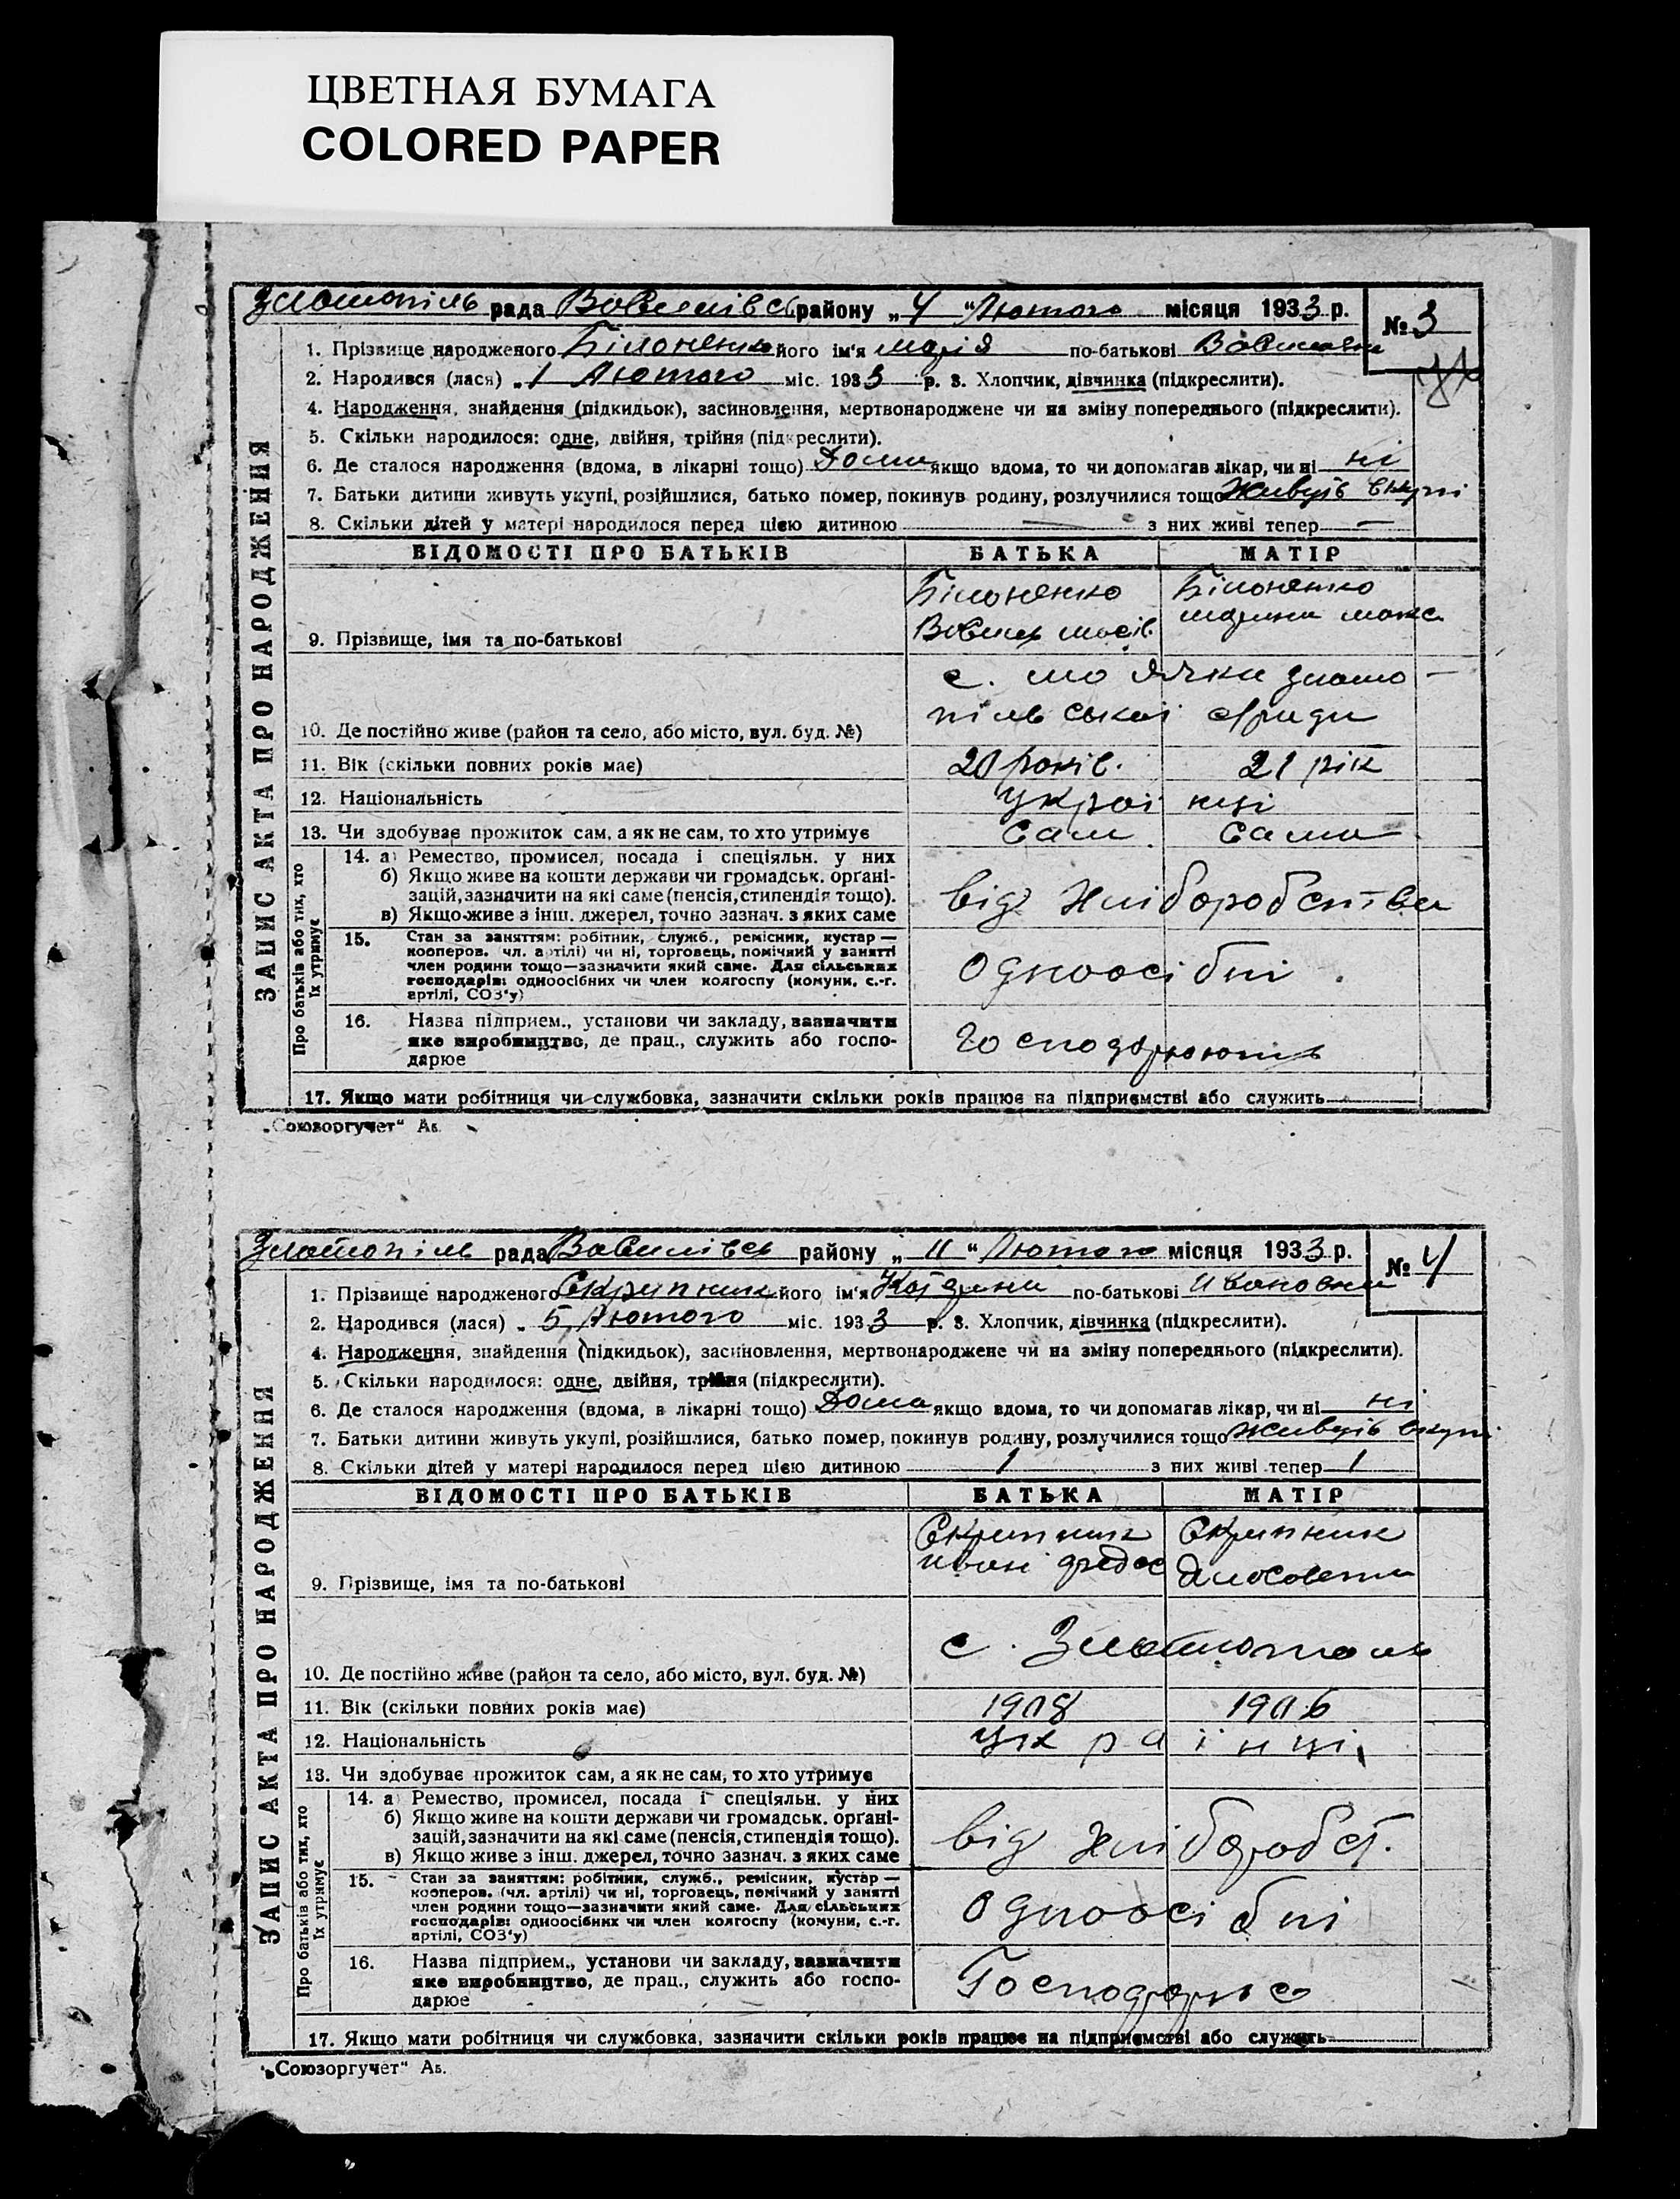 ЦВЕТНАЯ БУМАГА
COLORED PAPER
Златопіль рада Вовилівсь району „ 4 “ Лютого місяця 1933 р. № 3
1. Прізвище народженого Білоненко його ім'я Марія по-батькові
2. Народився (лася) „ 1 Лютого міс. 1933 р. 3. Хлопчик, дівчинка (підкреслити).
4. Народження, знайдення (підкидьок), засиновлення, мертвонароджене чи на зміну попереднього (підкреслити).
5. Скільки народилося: одне, двійня, трійня (підкреслити).
6. Де сталося народження (вдома, в лікарні тощо) Дома якщо вдома, то чи допомагав лікар, чи ні ні
7. Батьки дитини живуть укупі, розійшлися, батько помер, покинув родину, розлучилися тощо Живуть вкупі
8. Скільки дітей у матері народилося перед цією дитиною — з них живі тепер —
ЗАПИС АКТА ПРО НАРОДЖЕННЯ
ВІДОМОСТІ ПРО БАТЬКІВ БАТЬКА МАТІР
Білоненко Білоненко
9. Прізвище, імя та по-батькові
с. злато-
пільської с/ради
10. Де постійно живе (район та село, або місто, вул. буд. №)
11. Вік (скільки повних років має) 20 років. 21 рік
12. Національність Украі нці
13. Чи здобуває прожиток сам, а як не сам, то хто утримує Сам Сама
Про батьків або тих, хто їх утримує
14. а) Ремество, промисел, посада і спеціяльн. у них
б) Якщо живе на кошти держави чи громадськ. орґані-
зацій, зазначити на які саме (пенсія, стипендія тощо).
в) Якщо живе з інш. джерел, точно зазнач. з яких саме
від хліборобства
15. Стан за заняттям: робітник, служб., ремісник, кустар —
кооперов. чл. артілі) чи ні, торговець, помічний у занятті
член родини тощо—зазначити який саме. Для сільських
господарів: одноосібних чи член колгоспу (комуни, с.-г.
артілі, СОЗ'у)
Одноосібні
16. Назва підприєм., установи чи закладу, зазначити
яке виробництво, де прац., служить або госпо-
дарює
Господарюють
17. Якщо мати робітниця чи службовка, зазначити скільки років працює на підприємстві або служить
„Союзоргучет“ Ав.
Златопіль рада Вовилівсь району „ 11 “ Лютого місяця 1933 р. № 4
1. Прізвище народженого Скрипник його ім'я по-батькові Ивановна
2. Народився (лася) „ 5 Лютого міс. 1933 р. 3. Хлопчик, дівчинка (підкреслити).
4. Народження, знайдення (підкидьок), засиновлення, мертвонароджене чи на зміну попереднього (підкреслити).
5. Скільки народилося: одне, двійня, трійня (підкреслити).
6. Де сталося народження (вдома, в лікарні тощо) Дома якщо вдома, то чи допомагав лікар, чи ні ні
7. Батьки дитини живуть укупі, розійшлися, батько помер, покинув родину, розлучилися тощо Живуть вкупі
8. Скільки дітей у матері народилося перед цією дитиною 1 з них живі тепер 1
ЗАПИС АКТА ПРО НАРОДЖЕННЯ
ВІДОМОСТІ ПРО БАТЬКІВ БАТЬКА МАТІР
Скрипник Скрипник
9. Прізвище, імя та по-батькові
10. Де постійно живе (район та село, або місто, вул. буд. №) с. Златополь
11. Вік (скільки повних років має) 1908 1906
12. Національність Укра їнці
13. Чи здобуває прожиток сам, а як не сам, то хто утримує
Про батьків або тих, хто їх утримує
14. а) Ремество, промисел, посада і спеціяльн. у них
б) Якщо живе на кошти держави чи громадськ. орґані-
зацій, зазначити на які саме (пенсія, стипендія тощо).
в) Якщо живе з інш. джерел, точно зазнач. з яких саме
від хліборобст.
15. Стан за заняттям: робітник, служб., ремісник, кустар —
кооперов. (чл. артілі) чи ні, торговець, помічний у занятті
член родини тощо—зазначити який саме. Для сільських
господарів: одноосібних чи член колгоспу (комуни, с.-г.
артілі, СОЗ'у)
Одноосібні
16. Назва підприєм., установи чи закладу, зазначити
яке виробництво, де прац., служить або госпо-
дарює
17. Якщо мати робітниця чи службовка, зазначити скільки років працює на підприємстві або служить
„Союзоргучет“ Ав.